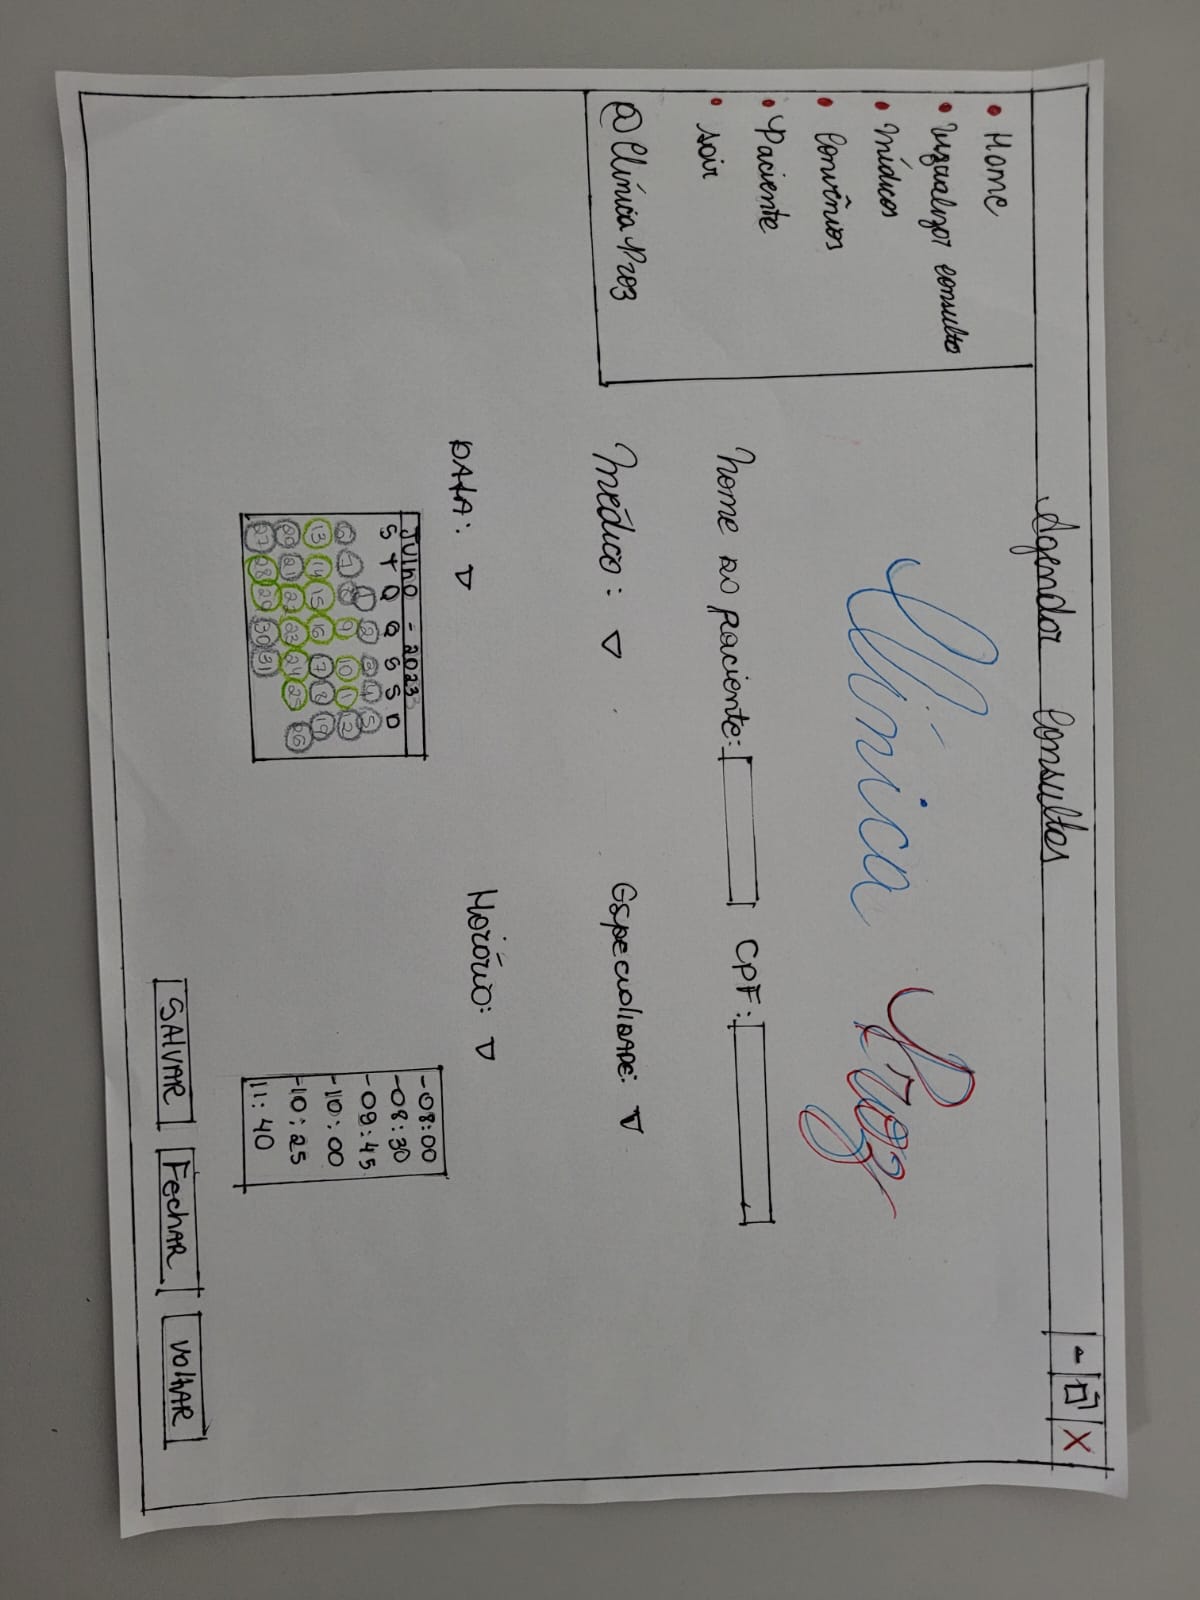 Agendar Consultas
- X
• Home
• Vizualizar consultas
• médicos
• Convênios
• Paciente
• sair
@ClínicaProz
Clínica Proz
nome do paciente:
CPF:
médico:
Especialidade:
DATA:
Julho - 2023
S T Q Q S S D
1 2 3 4 5
6 7 8 9 10 11 12
13 14 15 16 17 18 19
20 21 22 23 24 25 26
27 28 29 30 31
Horário:
-08:00
-08:30
-09:45
-10:00
-10:25
11:40
SALVAR
Fechar
VOLTAR